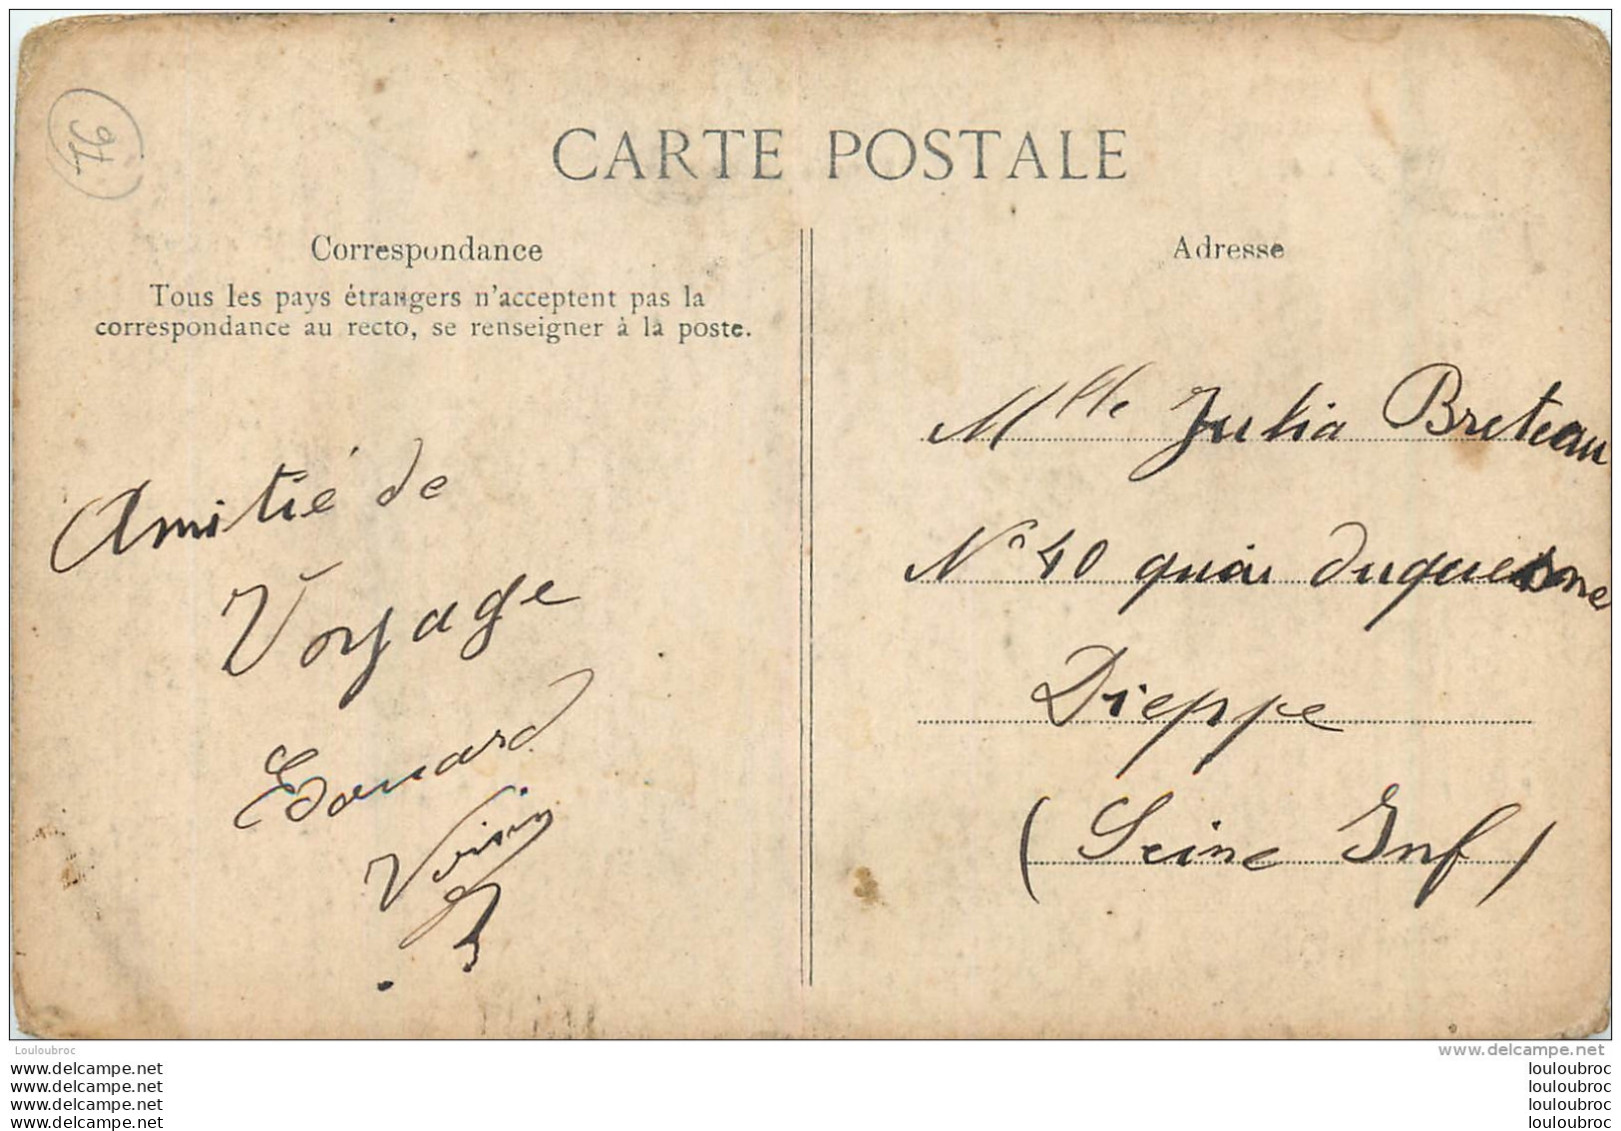 91
CARTE POSTALE
Correspondance
Tous les pays étrangers n'acceptent pas la
correspondance au recto, se renseigner à la poste.
Amitié de
Voyage
Edouard
Voisin
Adresse
Mlle Julia Breteau
N° 40 quai duquesne
Dieppe
(Seine Inf)
Louloubroc
www.delcampe.net
www.delcampe.net
www.delcampe.net
www.delcampe.net
www.delcampe.net
louloubroc
louloubroc
louloubroc
louloubroc